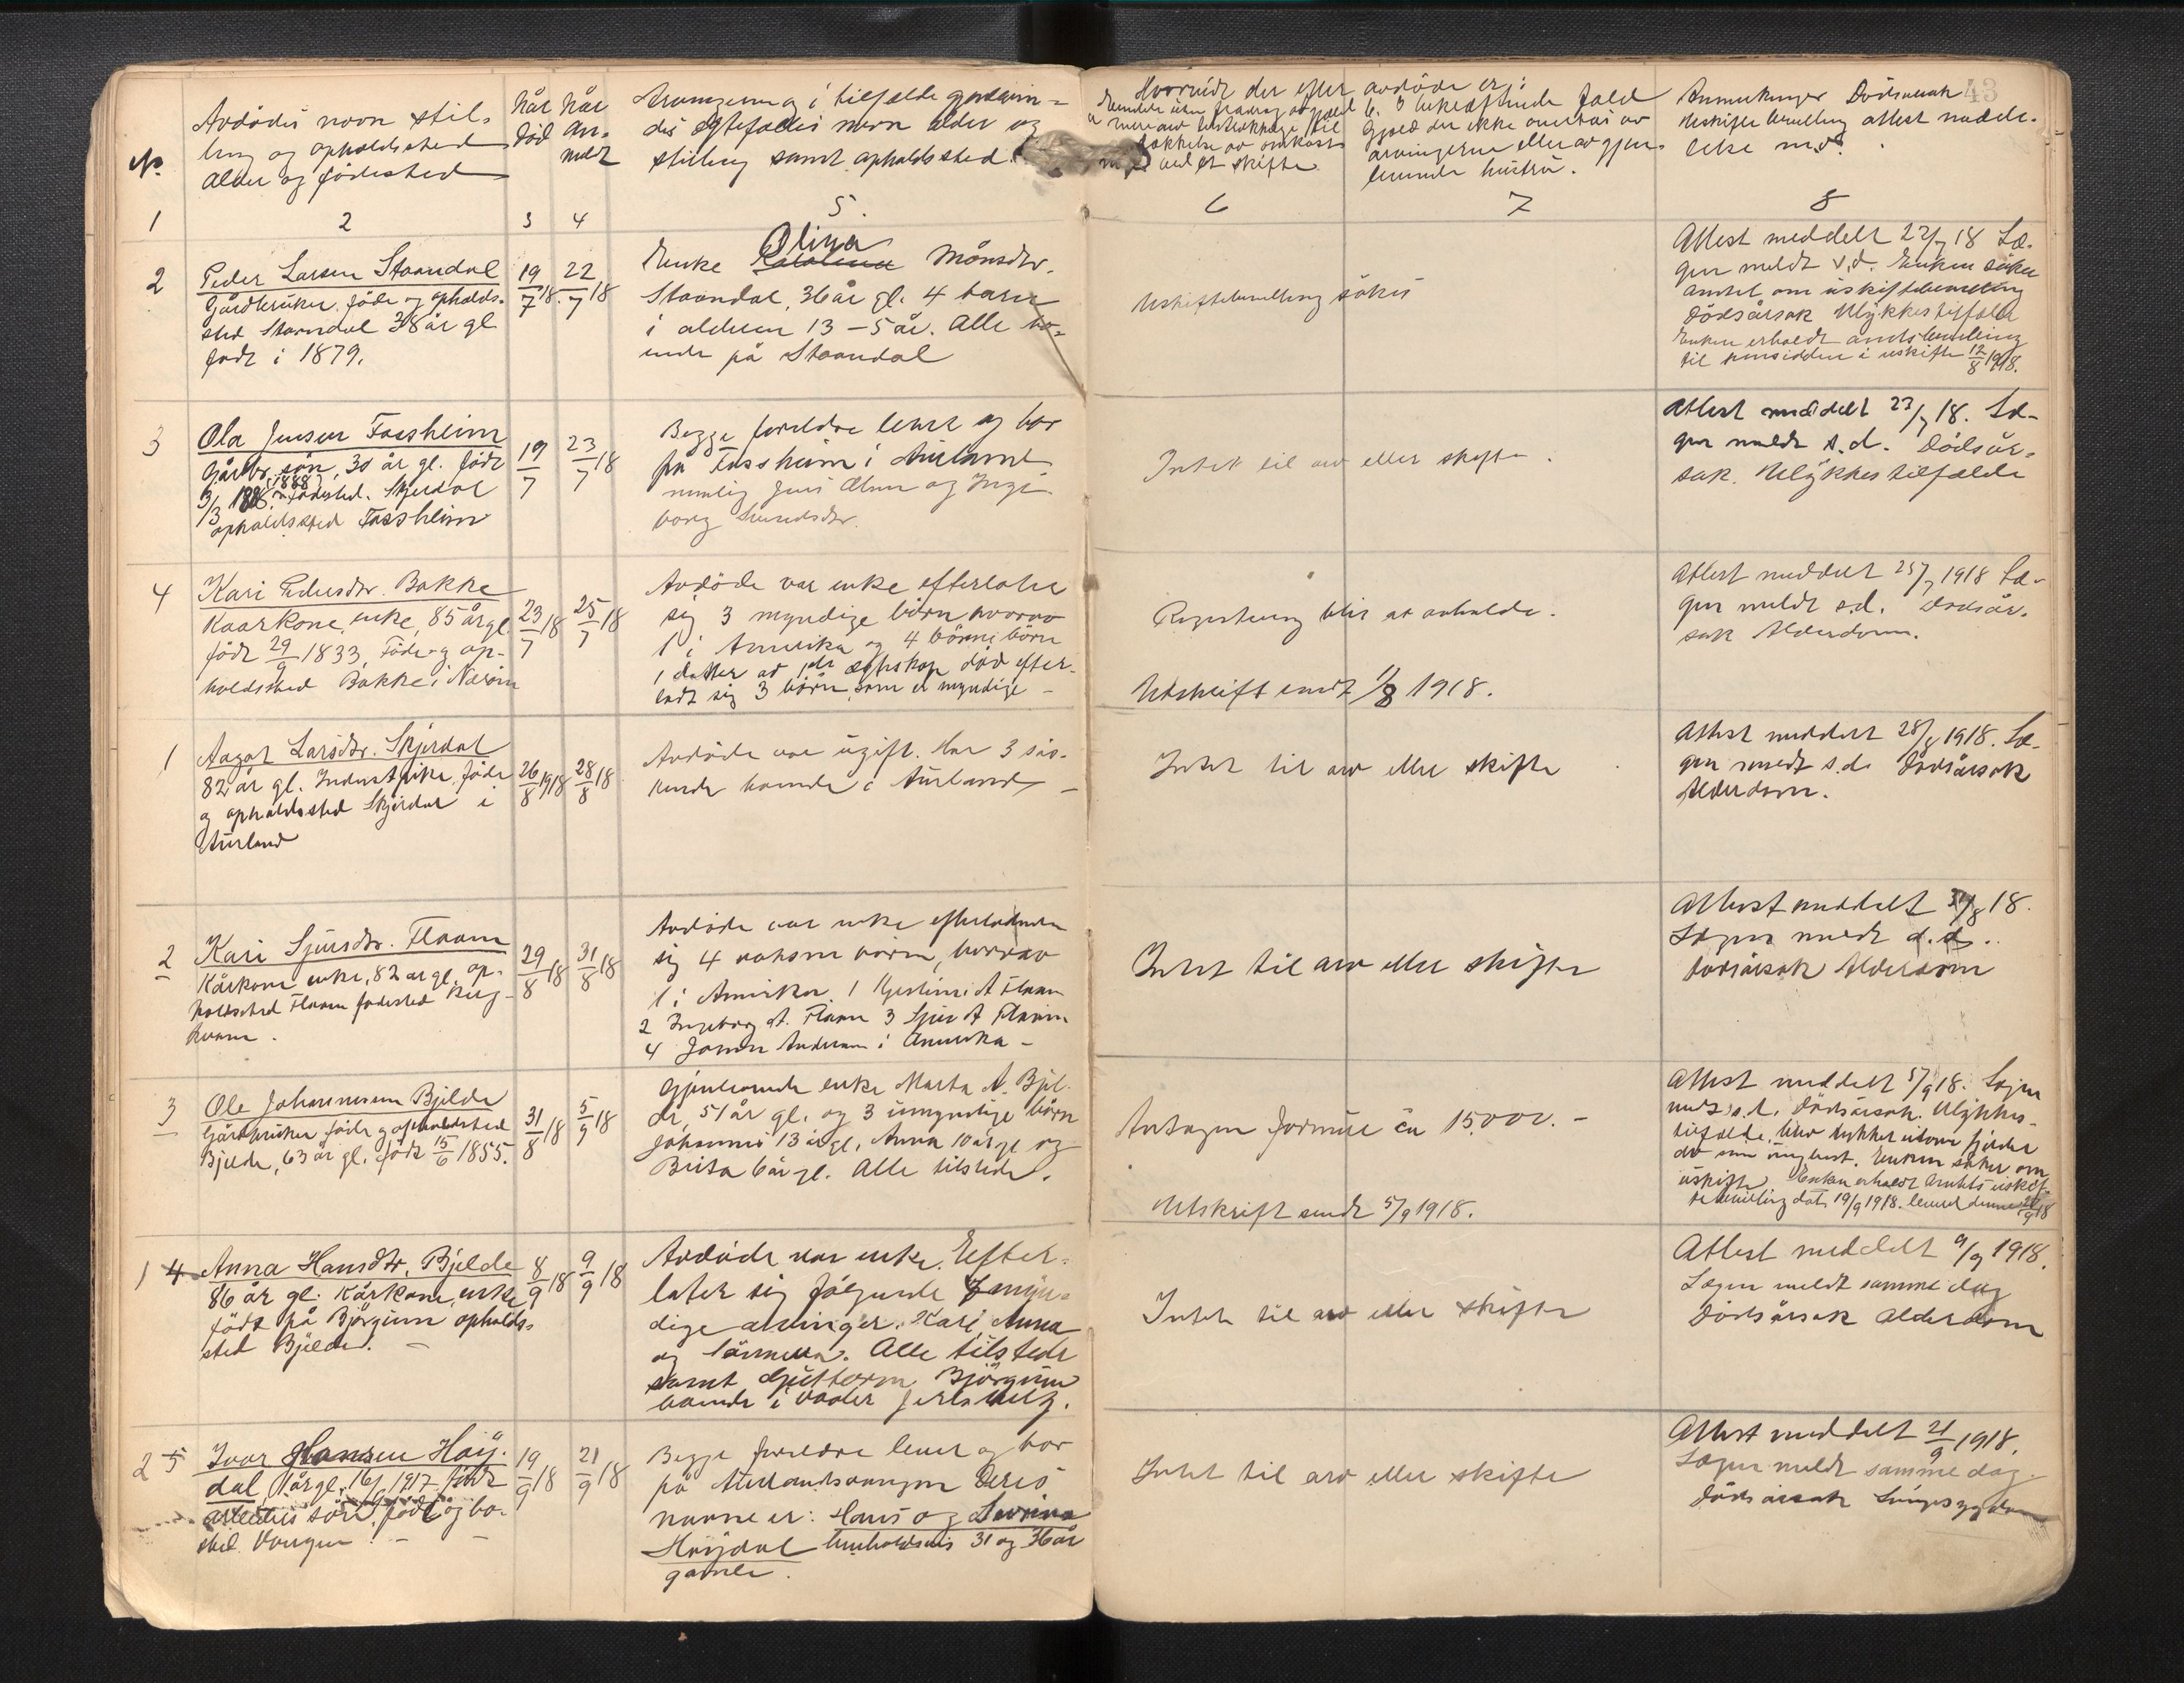 43
No.
Avdödes navn stil-
ling og opholdssted
alder og födested
Når
död
Når
an-
meldt
Arvingerne og i tilfælde gjenlevn-
des egtefælles navn alder og
stilling samt opholdssted.
Hvorvidt der efter avdöde er:
til
dækkelse av omkost-
ved et skifte
gjæld der ikke overtas av
arvingerne eller av gjen-
levende hustru.
Anmerkninger Dödsaarsak
Uskifte bevilling attest meddel-
else m.v.
1 2 3 4 5. 6 7 8
2
Peder Larsen Staandal
Gårdbruker, föde og opholds-
sted Staandal 38 år gl
födt i 1879.
19/7 18.
22/7 18
Enke Olina Månsdtr.
Staandal, 36 år gl. 4 barn
i alderen 13 – 5 år. Alle bo-
ende på Staandal
Uskiftebevilling sökes
Attest meddelt 22/7 18 Læ-
gen meldt s.d. Enken söker
amtet om uskiftebevilling
Dödsårsak Ulykkestilfælde
Enken erholdt amtsbevilling
til hensidden i uskifte 12/8 1918.
3
Ola Jensen Fossheim
Gårdbr. sön, 30 år gl. födt
3/3 1888 (1888) födested. Skjerdal
opholdssted Fossheim
19/7
23/7 18
Begge foreldre lever og bor
på Fossheim i Aurland
nemlig Jens Olsen og Inge-
borg
Intet til arv eller skifte.
Attest meddelt 23/7 18. Læ-
gen meldt s.d. Dödsår-
sak. Ulykkestilfælde
4
Kari Pedersdtr. Bakke
Kaarkone, enke, 85 år gl.
födt 29/9 1833, Föde og op-
holdssted Bakke i Næröin
23/7 18
25/7 18
Avdöde var enke efterlater
sig 3 myndige börn hvorav
1 i Amerika og 4 börnebörn
1 datter av 1ste ægteskap död efter-
ladt sig 3 börn, som er myndige –
Registrering blir at avholde.
Utskrift sendt 1/8 1918.
Attest meddelt 25/7 1918 Læ-
gen meldt s.d. Dödsår-
sak Alderdom.
1
Aagot Larsdtr. Skjerdal
82 år gl. Inderst pike, föde
og opholdssted Skjerdal i
Aurland
26/8 1918
28/8 18
Avdöde var ugift. Har 3 sös-
kende boende i Aurland –
Intet til arv eller skifte
Attest meddelt 28/8 1918. Læ-
gen meldt s.d. Dödsårsak
Alderdom.
2
Kari Sjursdtr. Flaam
Kårkone enke, 82 år gl. op-
holdssted Flaam födested Ryg-
kvam.
29/8 18
31/8 18
Avdöde var enke efterladende
sig 4 voksne börn, hvorav
1 i Amerika. 1 Gjertine A Flaam
2 Ingeborg A. Flaam 3 Sjur A Flaam
4 Andersen i Amerika –
Intet til arv eller skifte
Attest meddelt 31/8 18.
Lægen meldt d.d.
Dödsårsak Alderdom
3
Ole Johannesen Bjelde
Gårdbruker, föde og opholdssted
Bjelde, 63 år gl. födt 15/6 1855.
31/8 18
5/9 18
Gjenlevende enke Marta A. Bjel-
de, 51 år gl. og 3 umyndige börn
Johannes 13 år gl, Anna 10 år gl og
Brita 6 år gl. Alle tilstede.
Antagen formue ca 15.000. –
Utskrift sendt 5/9 1918.
Attest meddelt 5/9 18. Lægen
meldt s.d. Dödsårsak. Ulykkes-
tilfælde.
Enken söker om
uskifte. Enken erholdt Amtets uskif-
tebevilling dat. 19/9 1918.
1 4
Anna Hansdtr. Bjelde
86 år gl. Kårkone, enke
födt på Björgum opholds-
sted Bjelde. –
8/9 18
9/9 18
Avdöde var enke. Efter-
later sig fölgende myn-
dige arvinger. Kari, Anna
og Alle tilstede
samt Guttorm Björgum
boende i Vaaler Jarlsberg.
Intet til arv eller skifte
Attest meddelt 9/9 1918.
Lægen meldt samme dag
Dödsårsak alderdom
2 5
Ivar Hansen Höy-
dal 1 år gl. 16/9 1917 födt
sön, födt og bo-
sted Vangen. –
19/9 18
21/9 18
Begge foreldre lever og bor
på Aurlandsvangen Deres
navne er: Hans og Severina
Höydal henholdsvis 31 og 36 år
gamle.
Intet til arv eller skifte
Attest meddelt 21/9 1918.
Lægen meldt samme dag.
Dödsårsak Lungesygdom